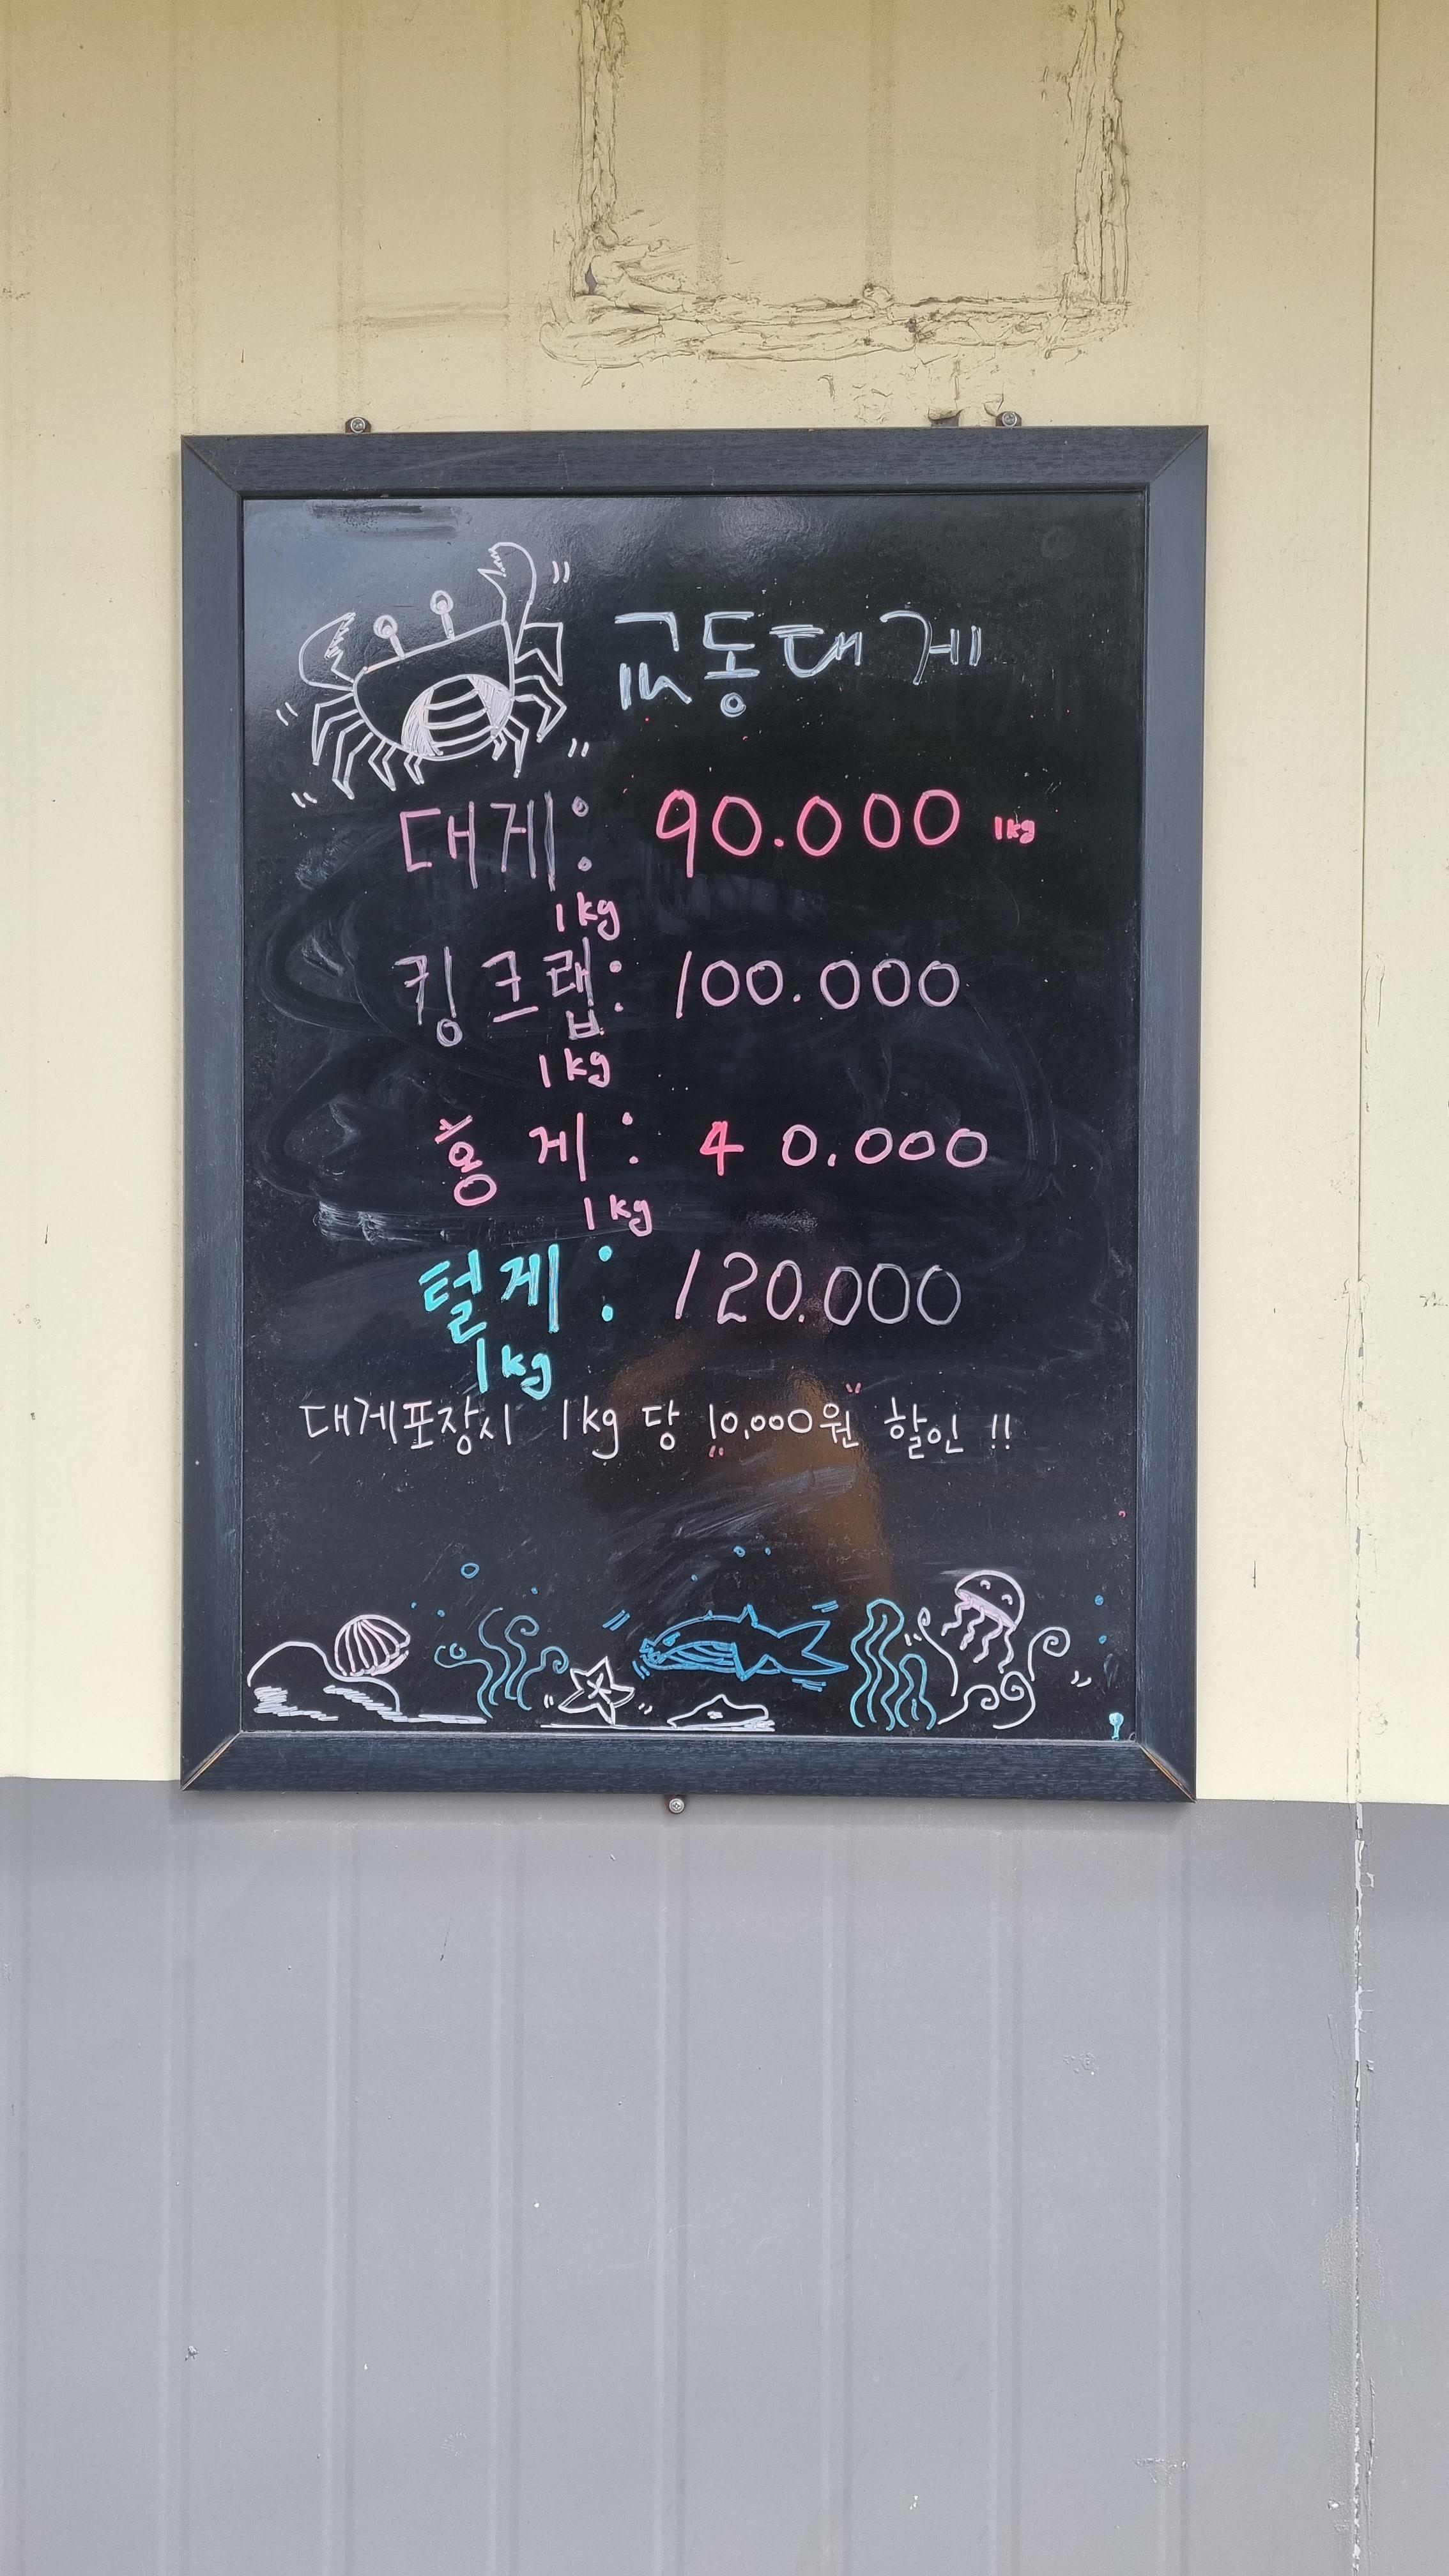 교동대게
대게: 90.000 1kg
1kg
킹크랩: 100.000
1kg
홍게: 40.000
1kg
털게: 120.000
1kg
대게포장시 1kg 당 10,000원 할인 !!